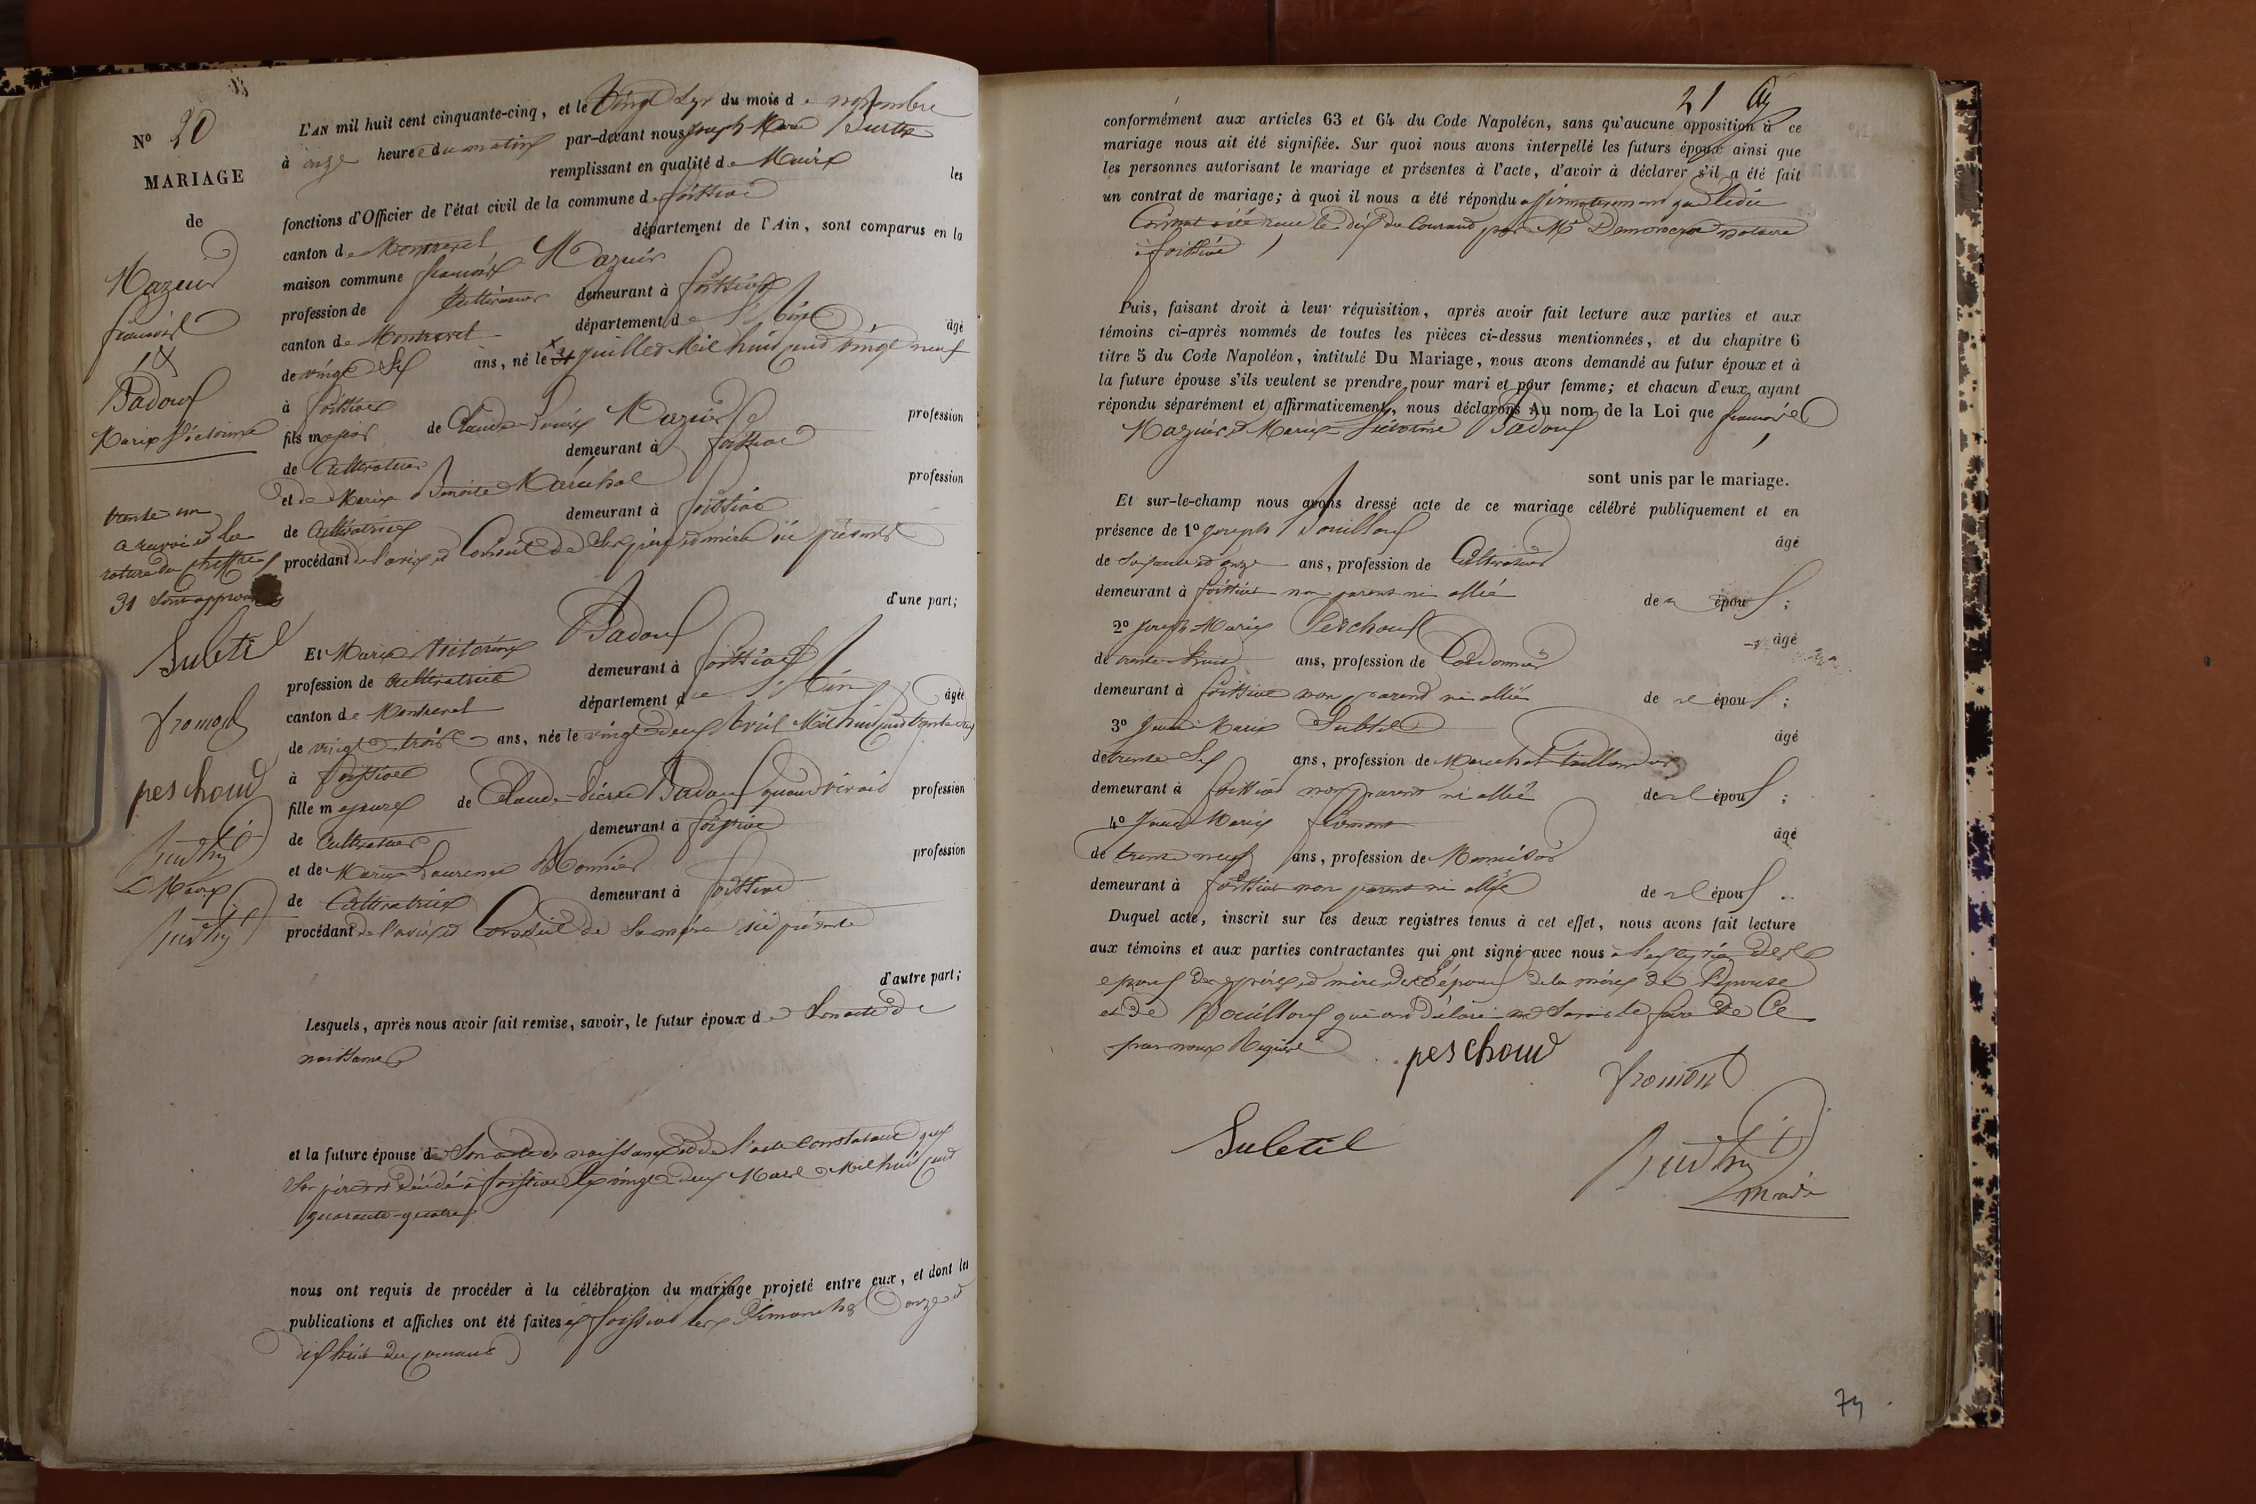 N° 20
MARIAGE
de
Mazuir
françois
&
Badoux
Marie Victorine
trente un
a renvoi et la
rature du chiffre
31 sont approuvés
Subtil
fromont
peschoud
le Maire
L'AN mil huit cent cinquante-cinq, et le vingt six du mois de novembre
à onze heures du matin par-devant nous joseph Marie
remplissant en qualité de Maire les
fonctions d'Officier de l'état civil de la commune de foissiat
canton de Montrevel département de l'Ain, sont comparus en la
maison commune françois Mazuir
profession de Cultivateur demeurant à foissiat
canton de Montrevel département de l'Ain âgé
de vingt six ans, né le 31 juillet Mil huit cent vingt neuf
à foissiat
fils majeur de Claude Louis Mazuir profession
de Cultivateur demeurant à foissiat
et de Marie Benoite Maréchal profession
de Cultivatrice demeurant à foissiat
procédant de l'avis et Conseil de ses père et mère ici présents
d'une part;
Et Marie Victorine Badoux
profession de Cultivatrice demeurant à foissiat
canton de Montrevel département de l'Ain âgée
de vingt trois ans, née le vingt deux Avril Mil huit cent trente deux
à foissiat
fille majeure de Claude-Pierre Badoux quand vivait profession
de Cultivateur demeurant à foissiat
et de Marie Laurence Monnier profession
de Cultivatrice demeurant à foissiat
procédant de l'avis et Conseil de sa mère ici présente
d'autre part;
Lesquels, après nous avoir fait remise, savoir, le futur époux de son acte de
naissance
et la future épouse de son acte de naissance et de l'acte constatant que
son père est décédé à foissiat le vingt deux Mars Mil huit cent
quarante-quatre
nous ont requis de procéder à la célébration du mariage projeté entre eux, et dont les
publications et affiches ont été faites à foissiat les Dimanches onze et
dix huit du courant
21
conformément aux articles 63 et 64 du Code Napoléon, sans qu'aucune opposition à ce
mariage nous ait été signifiée. Sur quoi nous avons interpellé les futurs époux ainsi que
les personnes autorisant le mariage et présentes à l'acte, d'avoir à déclarer s'il a été fait
un contrat de mariage; à quoi il nous a été répondu affirmativement que ledit
Contrat a été reçu le dix du Courant par Me notaire
à foissiat
Puis, faisant droit à leur réquisition, après avoir fait lecture aux parties et aux
témoins ci-après nommés de toutes les pièces ci-dessus mentionnées, et du chapitre 6
titre 5 du Code Napoléon, intitulé Du Mariage, nous avons demandé au futur époux et à
la future épouse s'ils veulent se prendre pour mari et pour femme; et chacun d'eux ayant
répondu séparément et affirmativement, nous déclarons Au nom de la Loi que françois
Mazuir et Marie-Victorine Badoux
sont unis par le mariage.
Et sur-le-champ nous avons dressé acte de ce mariage célébré publiquement et en
présence de 1° joseph Pouilloux âgé
de soixante et onze ans, profession de Cultivateur
demeurant à foissiat non parent ni allié des époux;
2° joseph Marie Peschoux âgé
de trente huit ans, profession de Cordonnier
demeurant à foissiat non parent ni allié des époux;
3° Jean Marie Subtil âgé
de trente six ans, profession de Maréchal Taillandier
demeurant à foissiat non parent ni allié des époux;
4° Jean Marie fromont âgé
de trente neuf ans, profession de Menuisier
demeurant à foissiat non parent ni allié des époux.
Duquel acte, inscrit sur les deux registres tenus à cet effet, nous avons fait lecture
aux témoins et aux parties contractantes qui ont signé avec nous à l'exception des
époux des père et mère de l'époux de la mère de l'épouse
et de Pouilloux qui ont déclaré ne savoir le faire de Ce
par nous Requis
peschoud
fromont
Subtil
maire
74